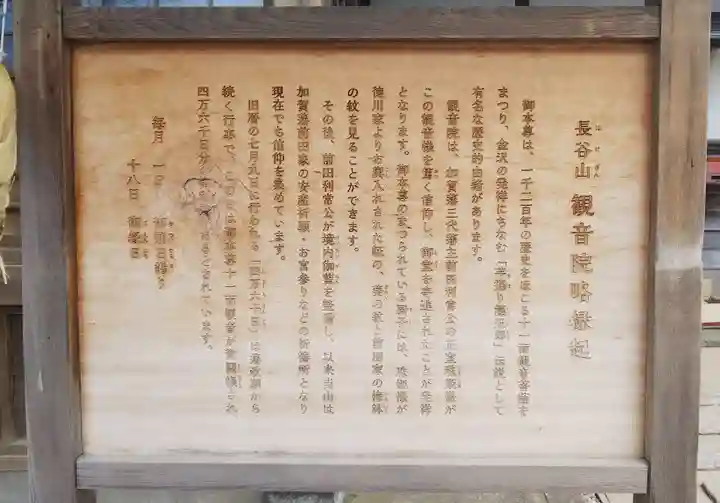 長谷山 観音院略縁起
はせざん
御本尊は、一千二百年の歴史をほこる十一面観音菩薩を
まつり、金沢の発祥にちなむ「芋掘り藤五郎」伝説として
有名な歴史的由緒があります。
観音院は、加賀藩三代藩主前田利常公の正室珠姫様が
この観音様を篤く信仰し、御堂を寄進されたことが発祥
となります。御本尊のまつられている厨子には、珠姫様が
徳川家よりお輿入れされた証の、葵の紋と前田家の梅鉢
の紋を見ることができます。
その後、前田利常公が境内伽藍を整備し、以来当山は
加賀藩前田家の安産祈願・お宮参りなどの祈祷所となり
現在でも信仰を集めています。
旧暦の七月九日に行われる「四万六千日」は藩政期から
続く行事で、この日は御本尊十一面観音が御開帳され
四万六千日分の
されています。
毎月 一日
十八日 御縁日